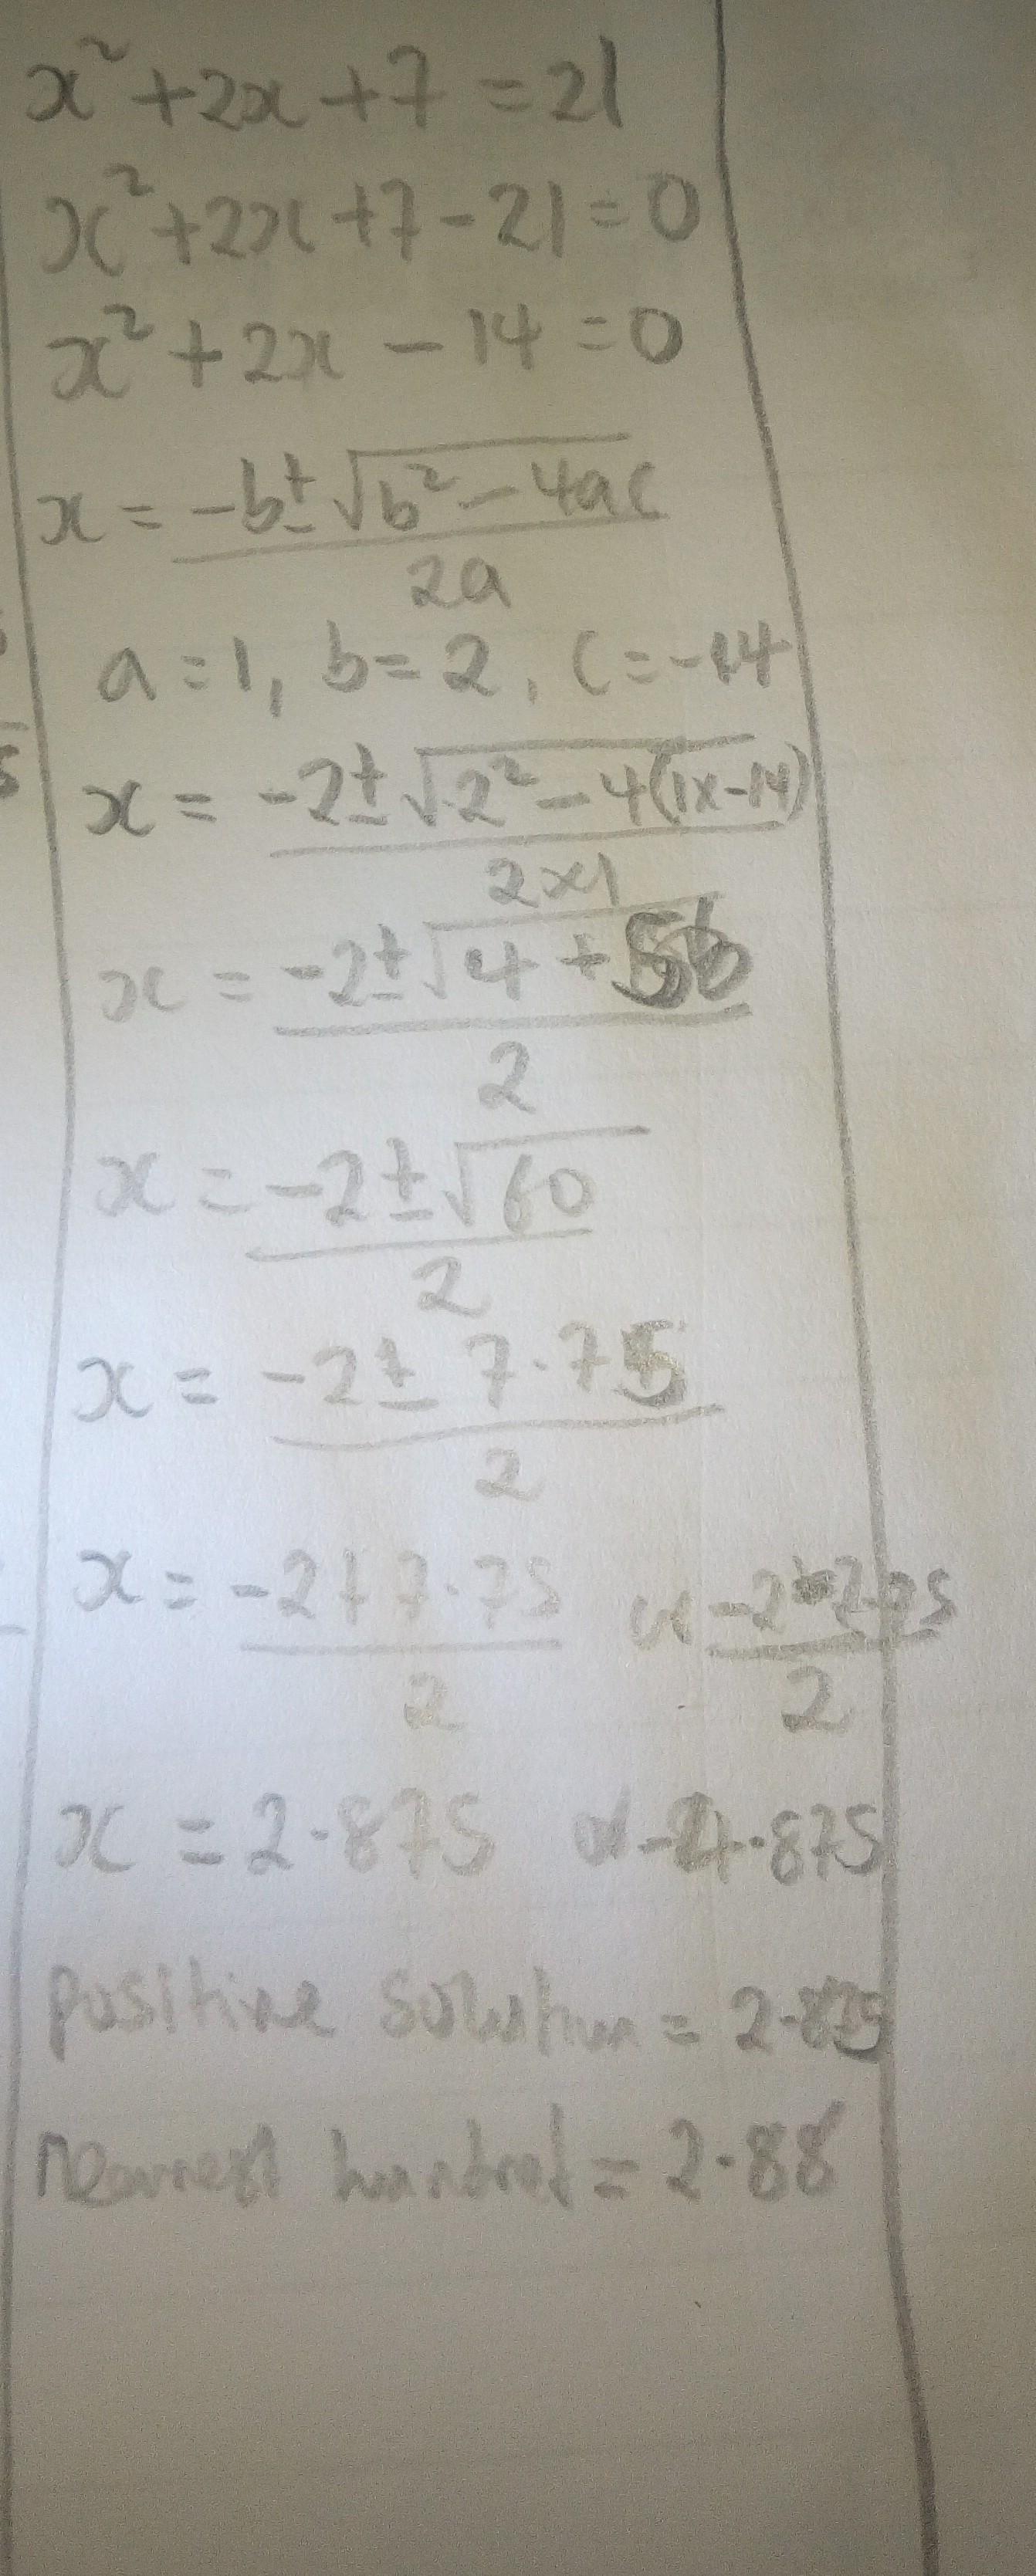 x² + 2x + 7 = 21
x² + 2x + 7 - 21 = 0
x² + 2x - 14 = 0
x = -b ± √b² - 4ac / 2a
a = 1, b = 2, c = -14
x = -2 ± √2² - 4(1x-14) / 2x1
x = -2 ± √4 + 56 / 2
x = -2 ± √60 / 2
x = -2 ± 7.75 / 2
x = -2 + 7.75 / 2 or -2 - 7.75 / 2
x = 2.875 or -4.875
positive solution = 2.875
Nearest hundred = 2.88